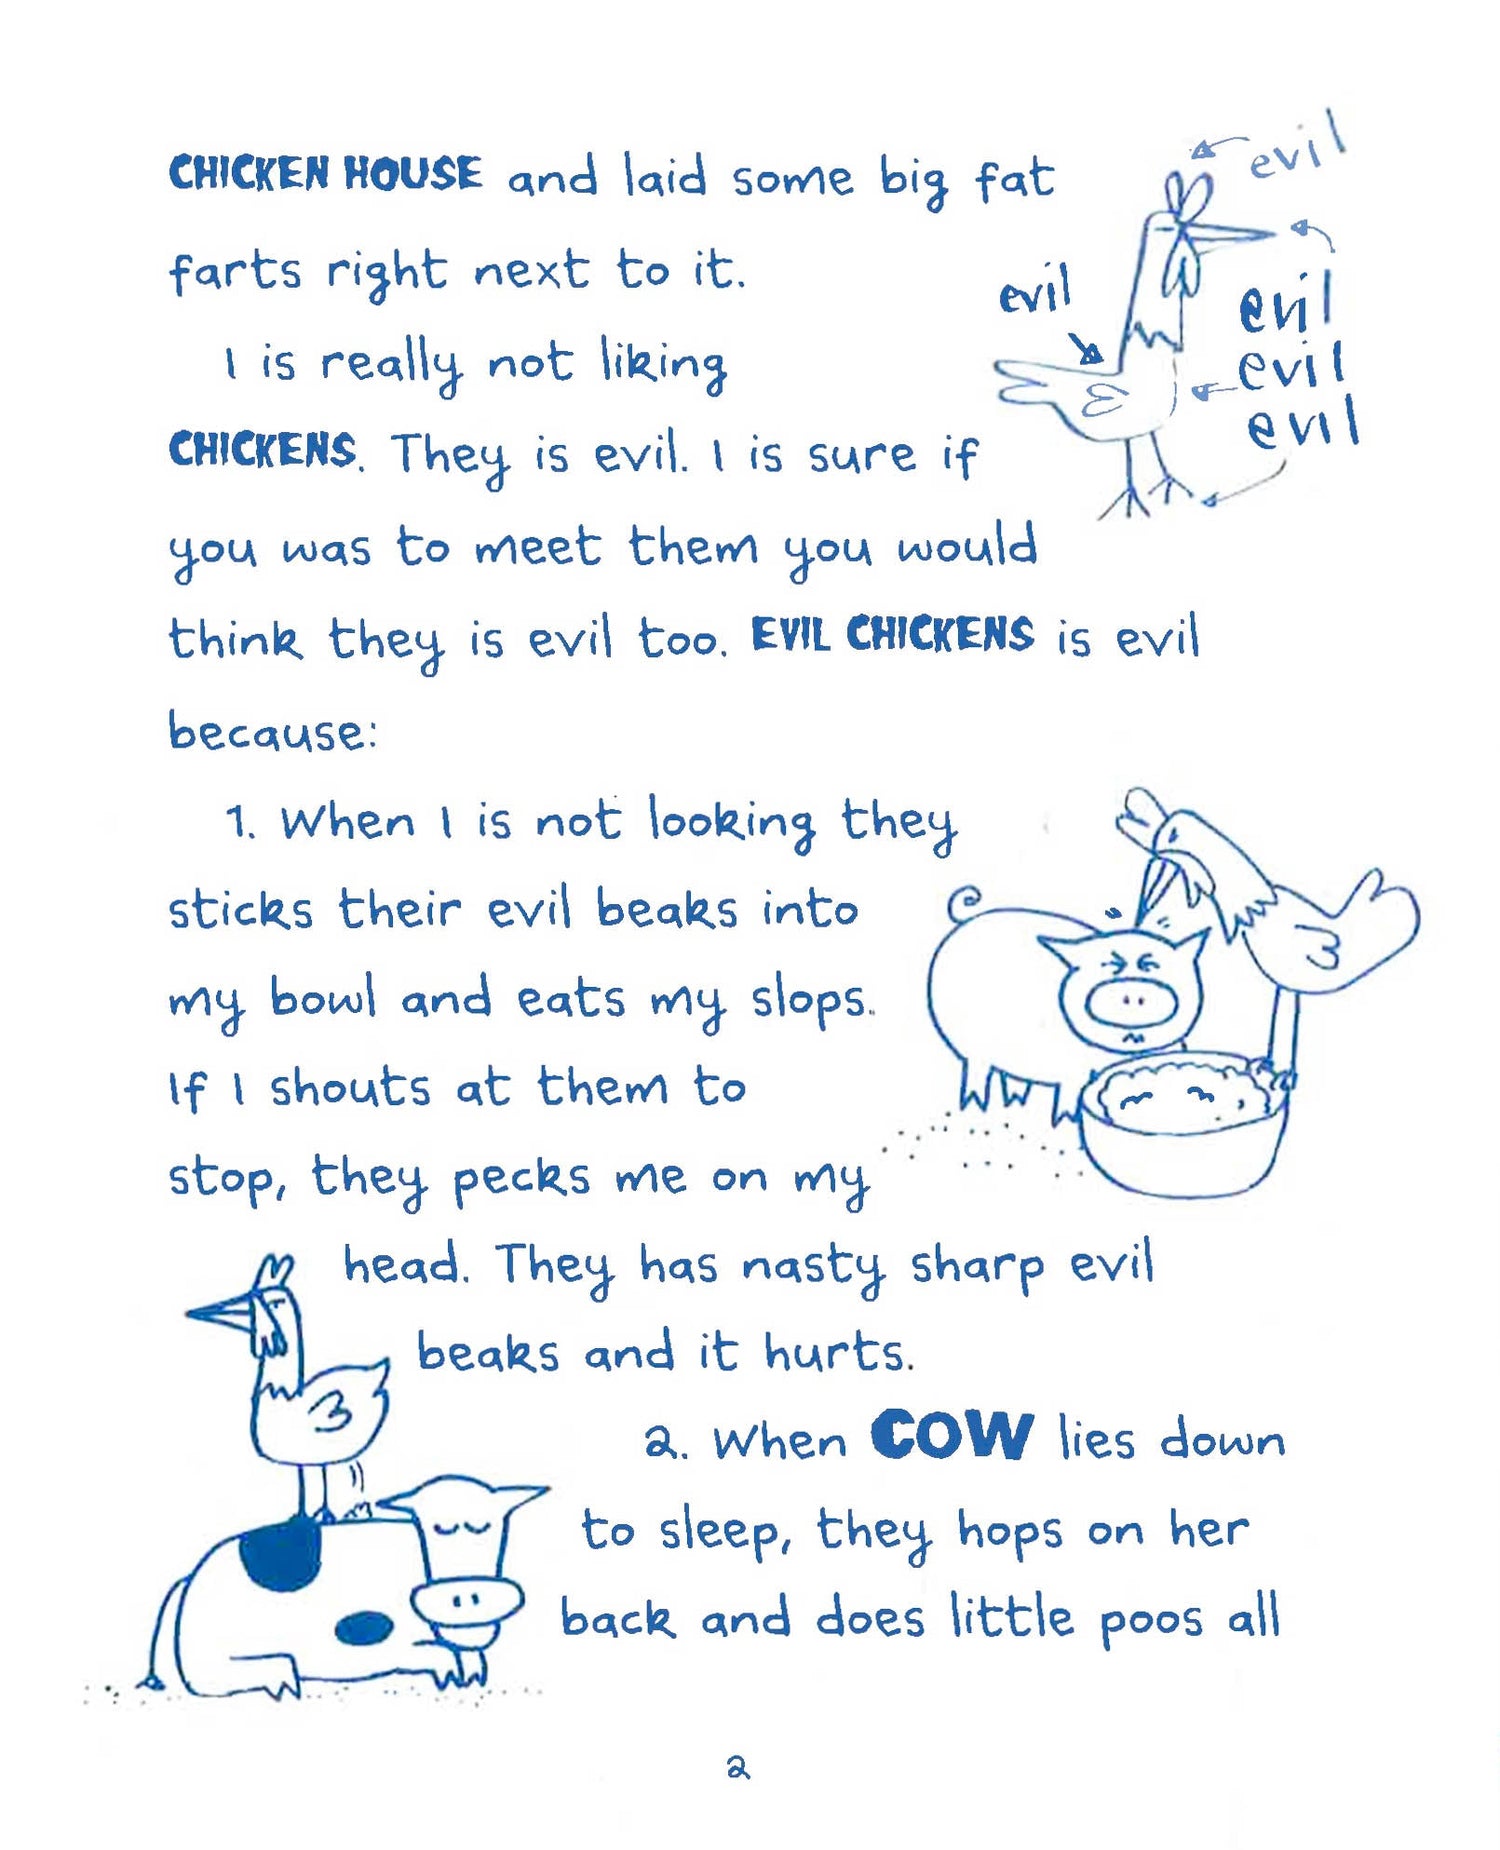 evil
CHICKEN HOUSE and laid some big fat
farts right next to it.
evil
evil
I is really not liking
evil
CHICKENS. They is evil. I is sure if
evil
you was to meet them you would
think they is evil too. EVIL CHICKENS is evil
because:
1. When I is not looking they
sticks their evil beaks into
my bowl and eats my slops.
If I shouts at them to
stop, they pecks me on my
head. They has nasty sharp evil
beaks and it hurts.
2. When COW lies down
to sleep, they hops on her
back and does little poos all
2